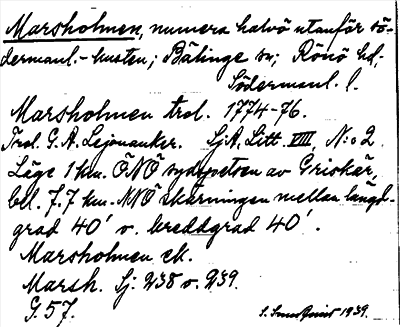 Marsholmen, numera halvö utanför sö-
dermanl.-kusten; Bälinge sn; Rönö hd;
Södermanl. l.
Marsholmen trol. 1774-76.
Trol. G.A. Lejonanker. Sj.A. Litt. VIII, N:o 2
Läge 1 km. ÖNÖ sydspetsen av Griskär,
bel. 7.7 km. NNÖ skärningen mellan längd-
grad 40' o. breddgrad 40'.
Marsholmen ek.
Marsh. Sj: 238 o. 239.
G 57.
1939.